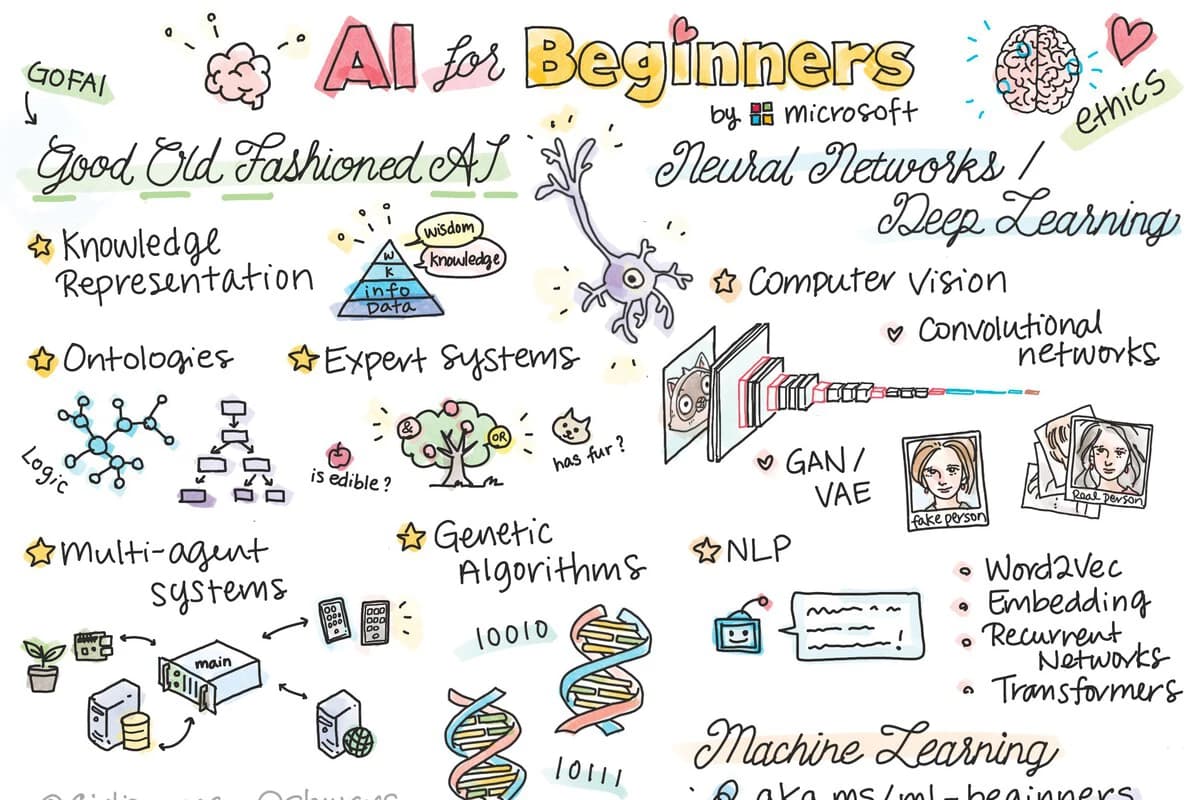 GOFAI
AI for Beginners
by Microsoft
ethics
Good Old Fashioned AI
Knowledge
Representation
wisdom
knowledge
W
K
info
Data
Ontologies
Logic
Expert Systems
&
OR
is edible?
has fur?
Multi-agent
systems
main
Genetic
Algorithms
10010
10111
Neural Networks /
Deep Learning
Computer Vision
Convolutional
networks
GAN /
VAE
fake person
Real person
NLP
Word2Vec
Embedding
Recurrent
Networks
Transformers
Machine Learning
aka.ms/ml-beginners